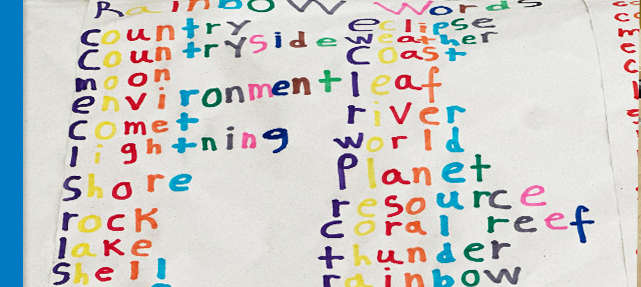 Rainbow Words
country
countryside
moon
environment
comet
lightning
shore
rock
lake
shell
eclipse
weather
coast
leaf
river
world
planet
resource
coral reef
thunder
rainbow